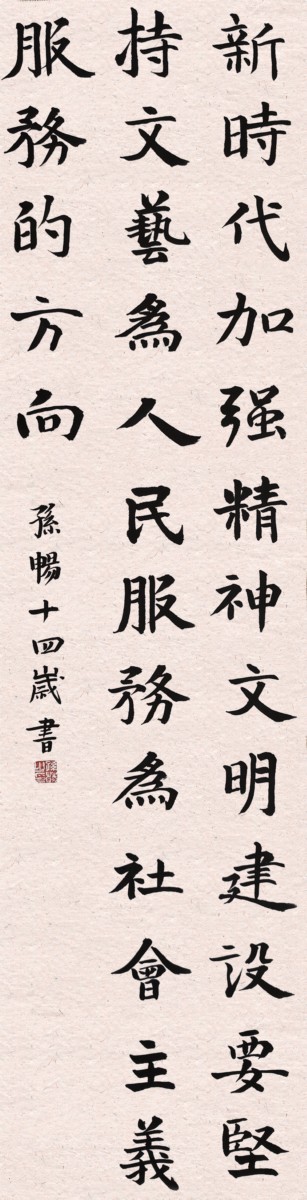 新時代加强精神文明建設要堅
持文藝為人民服務為社會主義
服務的方向
孫暢十四歲書